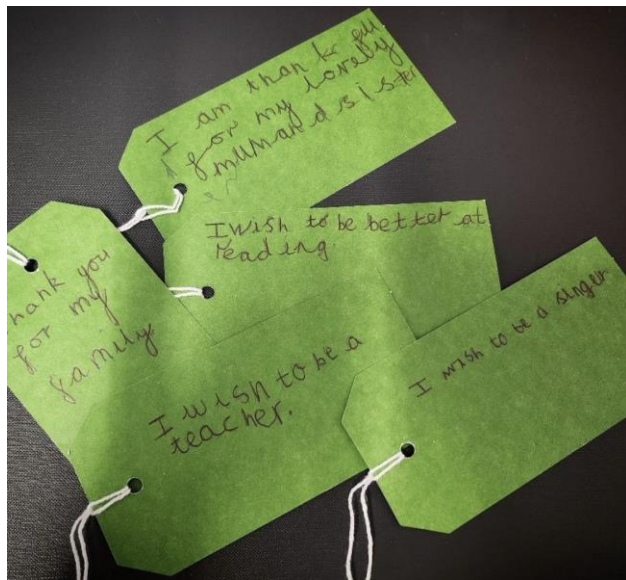 I am thankfull
for my lovely
mum and sister
I wish to be better at
reading.
hank you
for my
family
I wish to be a
teacher.
I wish to be a singer